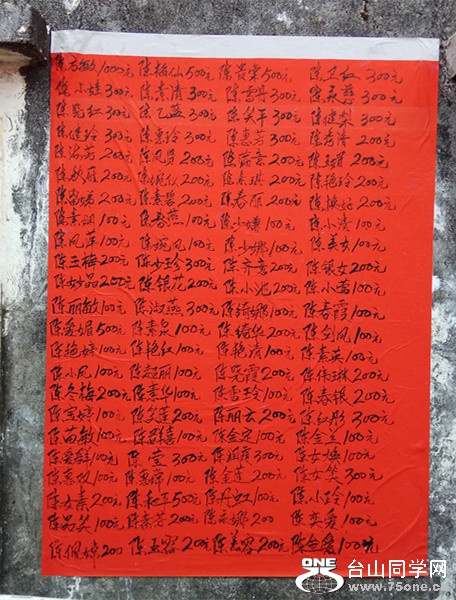 陈秀敏1000元 陈梅仙500元 陈贵棠500元 陈卫红300元
陈小娃300元 陈素清300元 陈雪丹300元 陈美慈300元
陈晃红300元 陈乙蓝300元 陈笑平300元 陈健梨300元
陈健玲300元 陈惠玲300元 陈惠芳300元 陈秀清200元
陈洛芳200元 陈凤贤200元 陈蔼意200元 陈瑶200元
陈欣雁200元 陈婉仪200元 陈素琪200元 陈艳玲200元
200元 陈素碧200元 陈春丽200元 陈焕娟200元
陈素娟100元 陈春燕100元 陈小嫌100元 陈小清100元
陈凤萍100元 陈婉凤100元 陈少娜100元 陈美女100元
陈三梅200元 陈少珍300元 陈齐意200元 陈银女200元
陈妙品200元 陈银花200元 陈小池200元 陈小茜100元
陈丽敏100元 陈淑燕300元 陈绮娜100元 陈春霞100元
陈爱娟500元 陈素泉100元 陈绮华200元 陈剑凤100元
陈艳嫦100元 陈艳红100元 陈艳清100元 陈素英100元
陈小凤100元 陈超丽100元 陈晃霞200元 陈伟琳200元
陈冬梅200元 陈素华100元 陈雪玲100元 陈春银200元
陈宝婷100元 陈笑莲200元 陈丽云200元 陈红彤300元
陈而敏100元 陈群喜100元 陈金定100元 陈金兰100元
陈爱群100元 陈莹300元 陈润彦300元 陈女焕100元
陈惠双100元 陈惠嫦100元 陈金莲200元 陈女笑300元
陈女素200元 陈和平500元 陈丹虹100元 陈小玲100元
陈品笑100元 陈素芳200元 陈娜200 陈奕爱100元
陈佩婵200 陈孟容200元 陈美容200元 陈金爱100元
ONE
台山同学网
www.75one.c